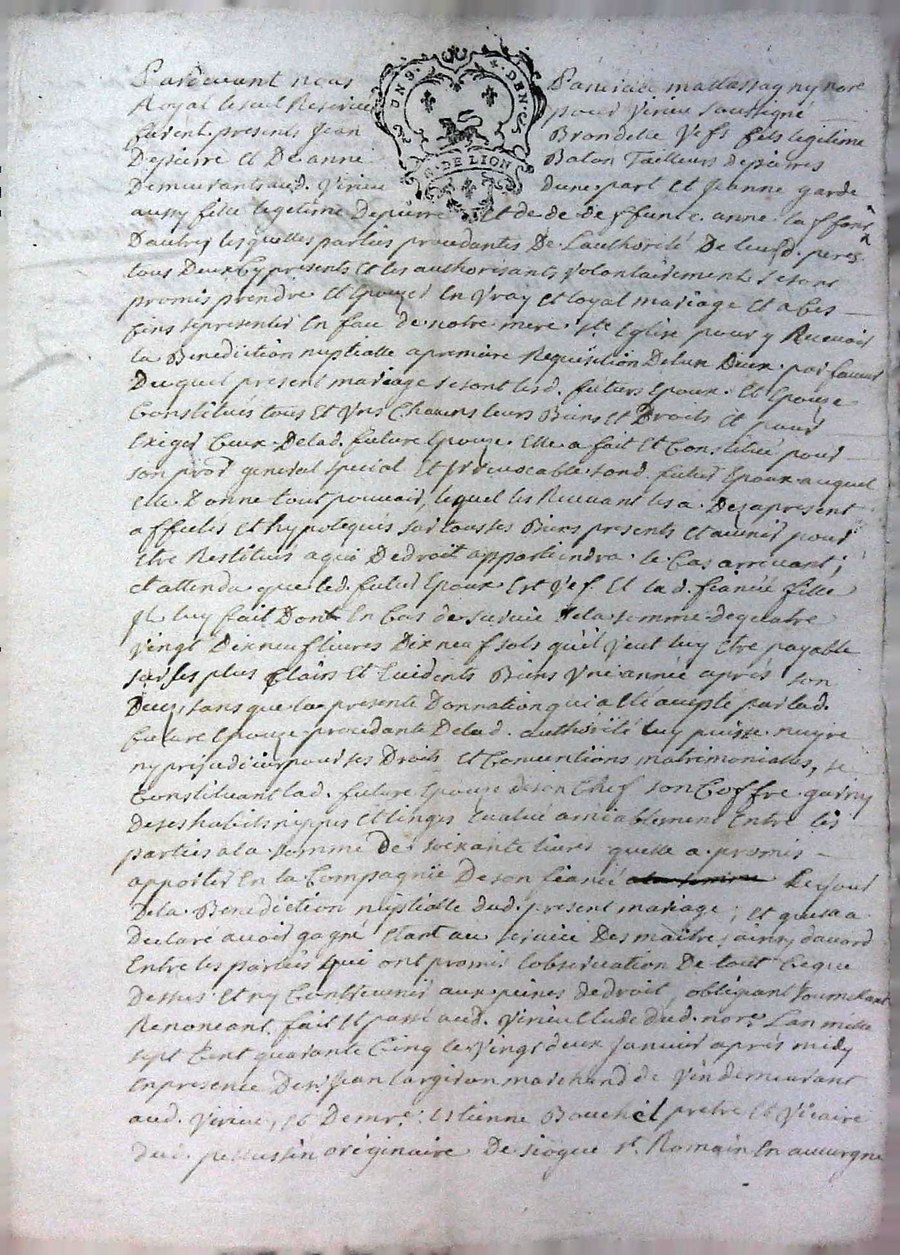 UN 9. & DEN
G. DE LION
Pardevant nous Patricée mattassagny nore
Royal et seul Reservé pour Virieu soussigné
furent presents Jean Brondelle Vefs fils legitime
Depierre et De anne Balon Tailleurs depieres
Demeurant aud. Virieu dune part et Jeanne garde
aussy fille legitime Depierre et de deffunte anne la ffont
Dautres lesquelles parties procedantes De Lauthorité De leursd. peres
tous Deux Cy presents et les authorisants volontairement se sont
promis prendre et Epouzer En vray et loyal mariage et a Ces
fins se presenter En face de notre mere ste Eglise pour y Recevoir
la Benediction nuptialle a premiere Requisition De lun Deux par faveur
Duquel present mariage se sont lesd. futurs Epoux et Epouze
Constitués tous et Uns Chacuns leurs Biens et Droits et pour
Exiger Ceux De lad. future Epouze Elle a fait et Constitué pour
son procr general special et Irrevocable sond. futur Epoux auquel
elle Donne tout pouvoir, lequel les Recevant les a Desapresent
affectés et hypotequés sur tous ses Biens presents et avenir pour
Etre Restitués a qui De droit appartiendra le Cas arrivant;
et attendu que led. futur Epoux Est Vef. et lad. fiancée fille
Il luy fait Dont En Cas de survie de la somme de quatre
vingt Dixneuf livres Dixneuf sols quil veut luy etre payable
sur ses plus Clairs et Evidents Biens Une année après son
Deces, sans que la presente Donnation qui a eté acceptée par lad.
future Epouze procedante De lad. authorité luy puisse nuyre
ny prejudicier pour ses Droits et Conventions matrimoniales, se
Constituant lad. future Epouze de son Chef son Coffre garny
De ses habits nippes et linges Evalué amiablement Entre les
parties a la somme De soixante livres quelle a promis
apporter En la Compagnie De son fiancé Le jour
De la Benediction nuptialle dud. present mariage; et quelle a
Declaré avoir gagné Etant au service Des maitres ainsy davord
Entre les parties qui ont promis lobservation De tout Ceque
Dessus et ny Contrevenir aux peines de droit, obligeant soumettant
Renonceant. fait et passé aud. Virieu Etude dud. nore. Lan mille
sept Cent quarante Cinq le vingt deux Janvier après midy
En presence De sr Jean Largeron marchand de vin demeurant
aud. Virieu, et De mre. estienne Bouchet pretre et Vicaire
dud. pellussin originaire De st. Romain En auvergne